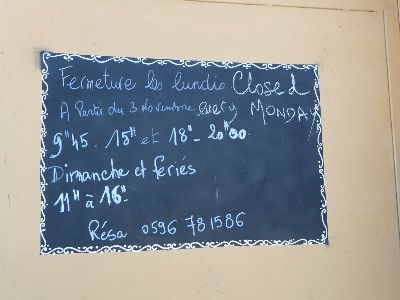 Fermeture les lundis Closed
A Partir du 3 Novembre every MONDAY
9H45. 15H et 18H - 20H00.
Dimanche et feriés
11H à 16H-
Résa 0596 781586